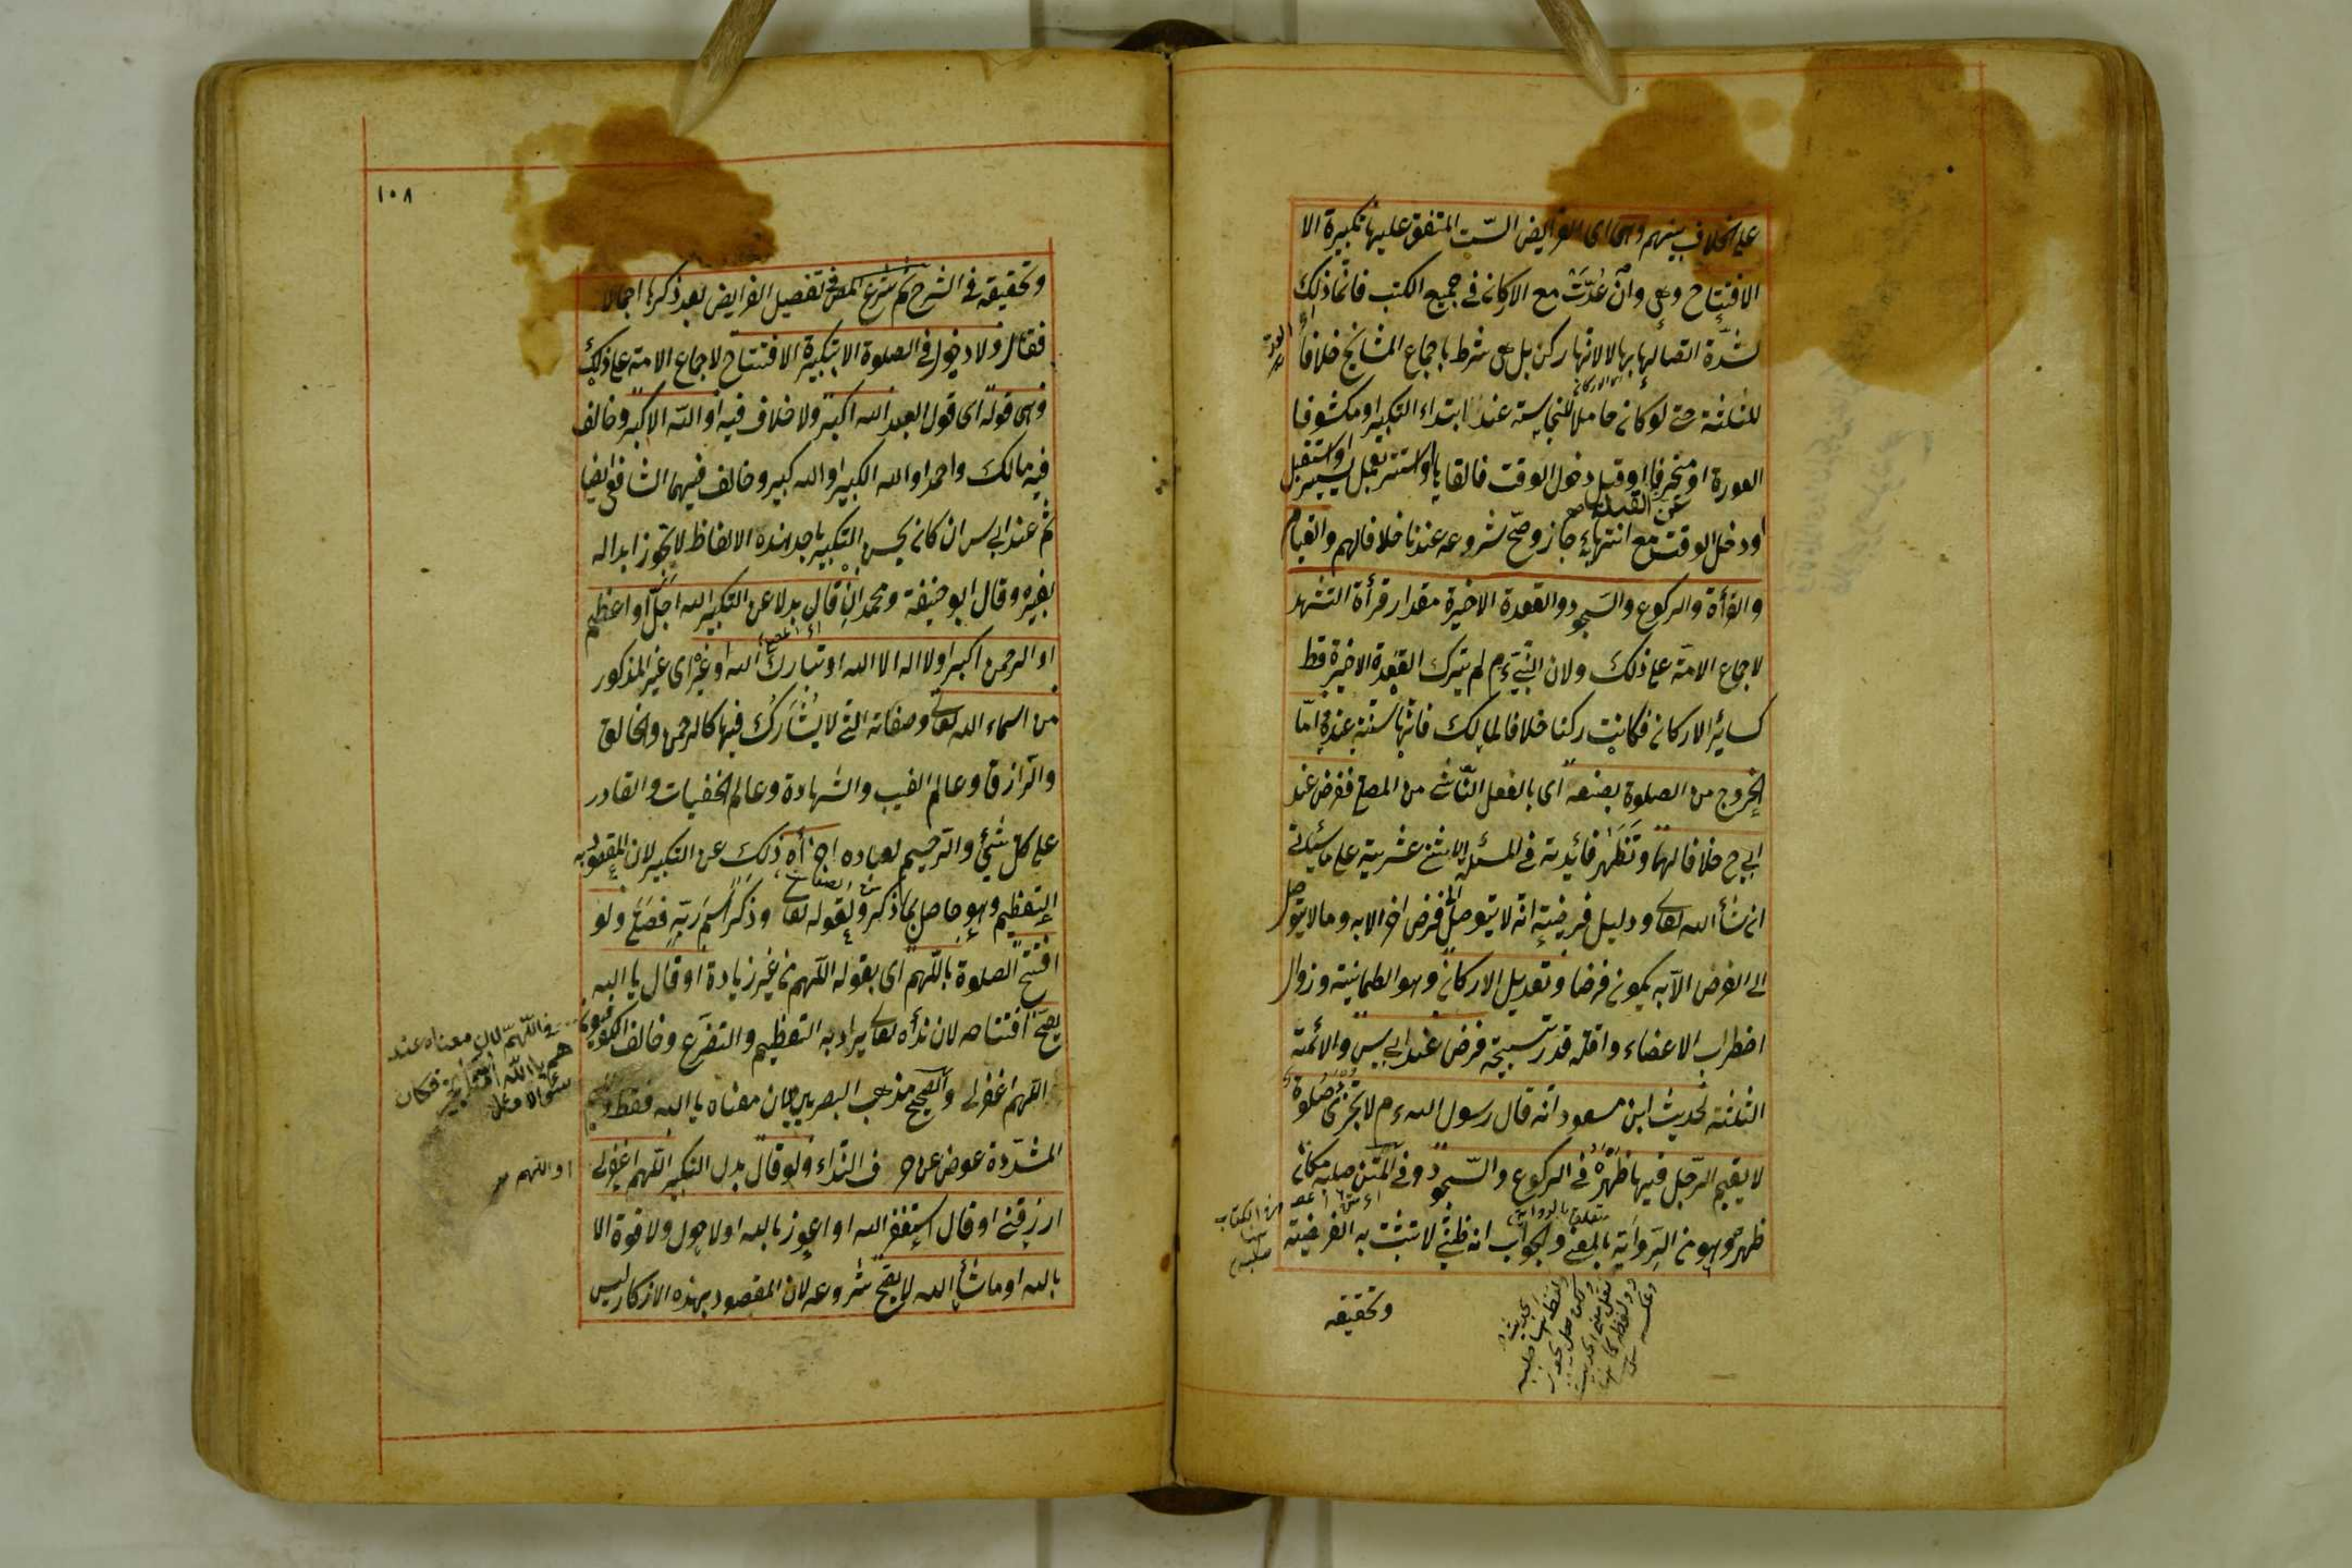 على اختلاف بينهم وهى اى الفرايض الست المتفق عليها تكبيرة الا
الافتتاح وهى وان عدّت مع الاركان فى جميع الكتب فانما ذلك
لشدّة اتصالها بها لا لانها ركن بل هى شرط باجماع المشايخ خلافا
للثلثة حتى لو كان حاملا للنجاسة عند ابتداء التكبير او مكشوف
العورة او منحرفا او قبل دخول الوقت فالقاها واستتر بعمل يسير او استقبل
عن القبلة صح
او دخل الوقت مع انتهائه جاز وصحّ شروعه عندنا خلافا لهم والقيام
والقرأة والركوع والسجود والقعدة الاخيرة مقدار قرأة التشهد
لاجماع الامّة على ذلك ولان النبىّ ءم لم يترك القعدة الاخيرة قط
كسائر الاركان فكانت ركنا خلافا لمالك فانها سنة عنده امّا
الخروج من الصلوة بصنعه اى بالفعل الناشى من المصلى ففرض عند
ابى ح خلافا لهما وتظهر فائدته فى المسئلة الاثنى عشرية على ما سيئاتى
ان شأ الله تعالى ودليل فرضيته انه لا يتوصل الى فرض اخر الا به وما لا يتوصل
الى الفرض الا به يكون فرضا وتعديل الاركان وهو الطمانينة وزوال
اضطراب الاعضاء واقله قدر تسبيحة فرض عند ابى يس والائمة
الثلثة لحديث ابن مسعود انه قال رسول الله ءم لا تجزئ صلوة
لا يقيم الرّجل فيها ظهره فى الركوع والسّجود وفى المتن صلبه مكان
ظهره وهو من الرّواية بالمعنى والجواب انه ظنىّ لا تثبت به الفرضيته
وتحقيقه
١٠٨
وتحقيقه فى الشرح ثم شرع المص فى تفصيل الفرايض بعد ذكرها اجمالا
فقال ولا دخول فى الصلوة الا بتكبيرة الافتتاح لاجماع الامة على ذلك
وهى قوله اى قول العبد الله اكبر ولا خلاف فيه او الله الاكبر وخالف
فيه مالك واحمد او الله الكبير او الله كبير وخالف فيهما الشافعى ايضا
ثم عند ابى يس ان كان يحسن التكبير باحد هذه الالفاظ لا تجوز ابداله
بغيره وقال ابو حنيفة ومحمد ان قال بدلا عن التكبير الله اجلّ او اعظم
او الرحمن اكبر او لا اله الا الله او تبارك الله او غيره اى غير المذكور
من اسماء الله تعالى وصفاته التى لا يشارك فيها كالرحمن والخالق
والرّازق وعالم الغيب والشهادة وعالم الخفيات والقادر
على كل شئ والرّحيم لعباده اجزأه ذلك عن التكبير لان المقصود به
التعظيم وهو حاصل بما ذكر ولقوله تعالى وذكر اسم ربّه فصلى ولو
افتتح الصلوة باللّهم اى بقوله اللّهم من غير زيادة او قال يا الله
يصحّ افتتاحه لان ندأه تعالى يراد به التعظيم والتضرّع وخالف الكوفيون
فى اللّهم لان معناه عند
هم يا الله امنا بخير فكان
سئوالا
اللهم اغفرلى والصحيح مذهب البصريين بان معناه يا الله فقط والميم
المشدّدة عوض عن حرف النداء ولو قال بدل التكبير اللّهم اغفرلى
او اللهم
ارزقنى او قال استغفر الله او اعوذ بالله او لا حول ولا قوة الا
بالله او ما شأ الله لا يصحّ شروعه لان المقصود بهذه الاذكار ليس